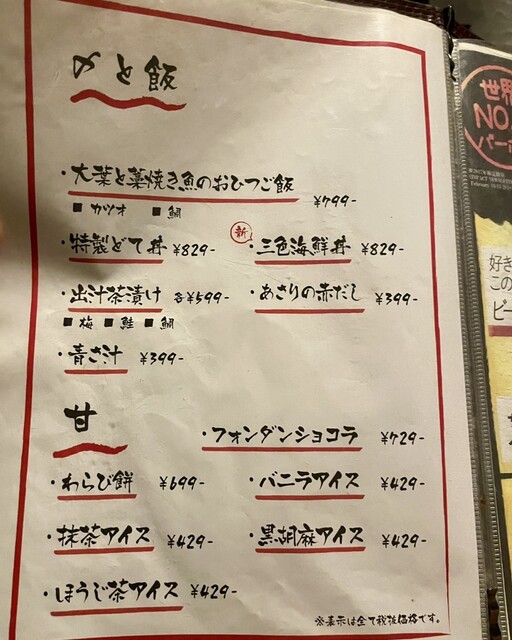 〆と飯
・大葉と藁焼き魚のおひつご飯 ¥799-
■ カツオ ■ 鯛
・特製どて丼 ¥829-
新 ・三色海鮮丼 ¥829-
・出汁茶漬け 各¥599-
・あさりの赤だし ¥399-
■ 梅 ■ 鮭 ■ 鯛
・青さ汁 ¥399-
甘
・フォンダンショコラ ¥729-
・わらび餅 ¥699-
・バニラアイス ¥429-
・抹茶アイス ¥429-
・黒胡麻アイス ¥429-
・ほうじ茶アイス ¥429-
※表示は全て税抜価格です。
世界
NO.
バー
好き
この
ビー